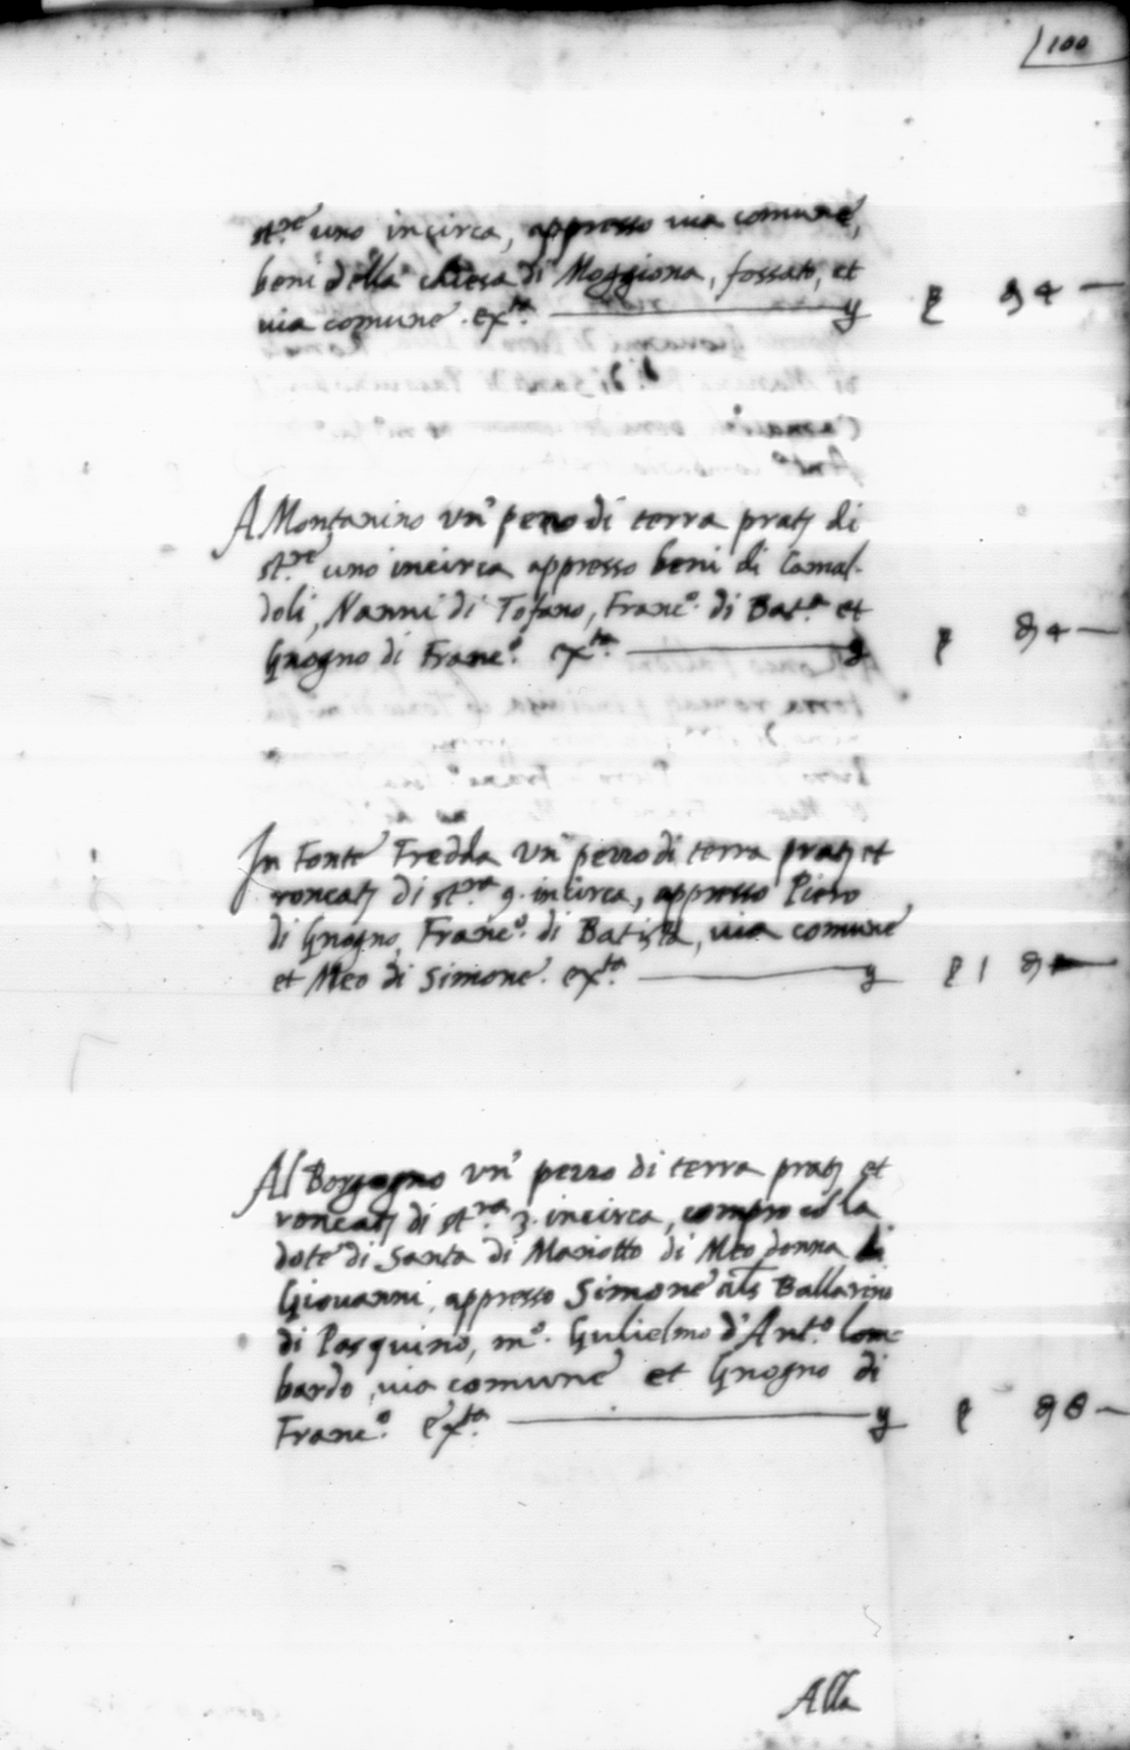 100
st.re uno incirca, appresso uia comune,
beni della chiesa di Moggiona, fossato, et
uia comune. ex.ta
A Montanino vn' pezzo di terra prat. di
st.re uno incirca appresso beni di Camal-
doli, Nanni di Tofano, Franc.o di Bat.a et
Gnogno di Franc.o ex.ta
In Fonte Fredda vn pezzo di terra prat. et
roncat. di st.ra 9. incirca, appresso Piero
di Gnogno, Franc.o di Batista, uia comune
et Meo di Simone. ex.ta
Al Borgogno vn' pezzo di terra prat. et
roncat. di st.ra 3. incirca, compro cō la
dote di Santa di Mariotto di Meo donna di
Giouanni, appresso Simone als Ballarino
di Pasquino, m.o Gulielmo d'Ant.o lom-
bardo, uia comune et Gnogno di
Franc.o ex.ta
Alla